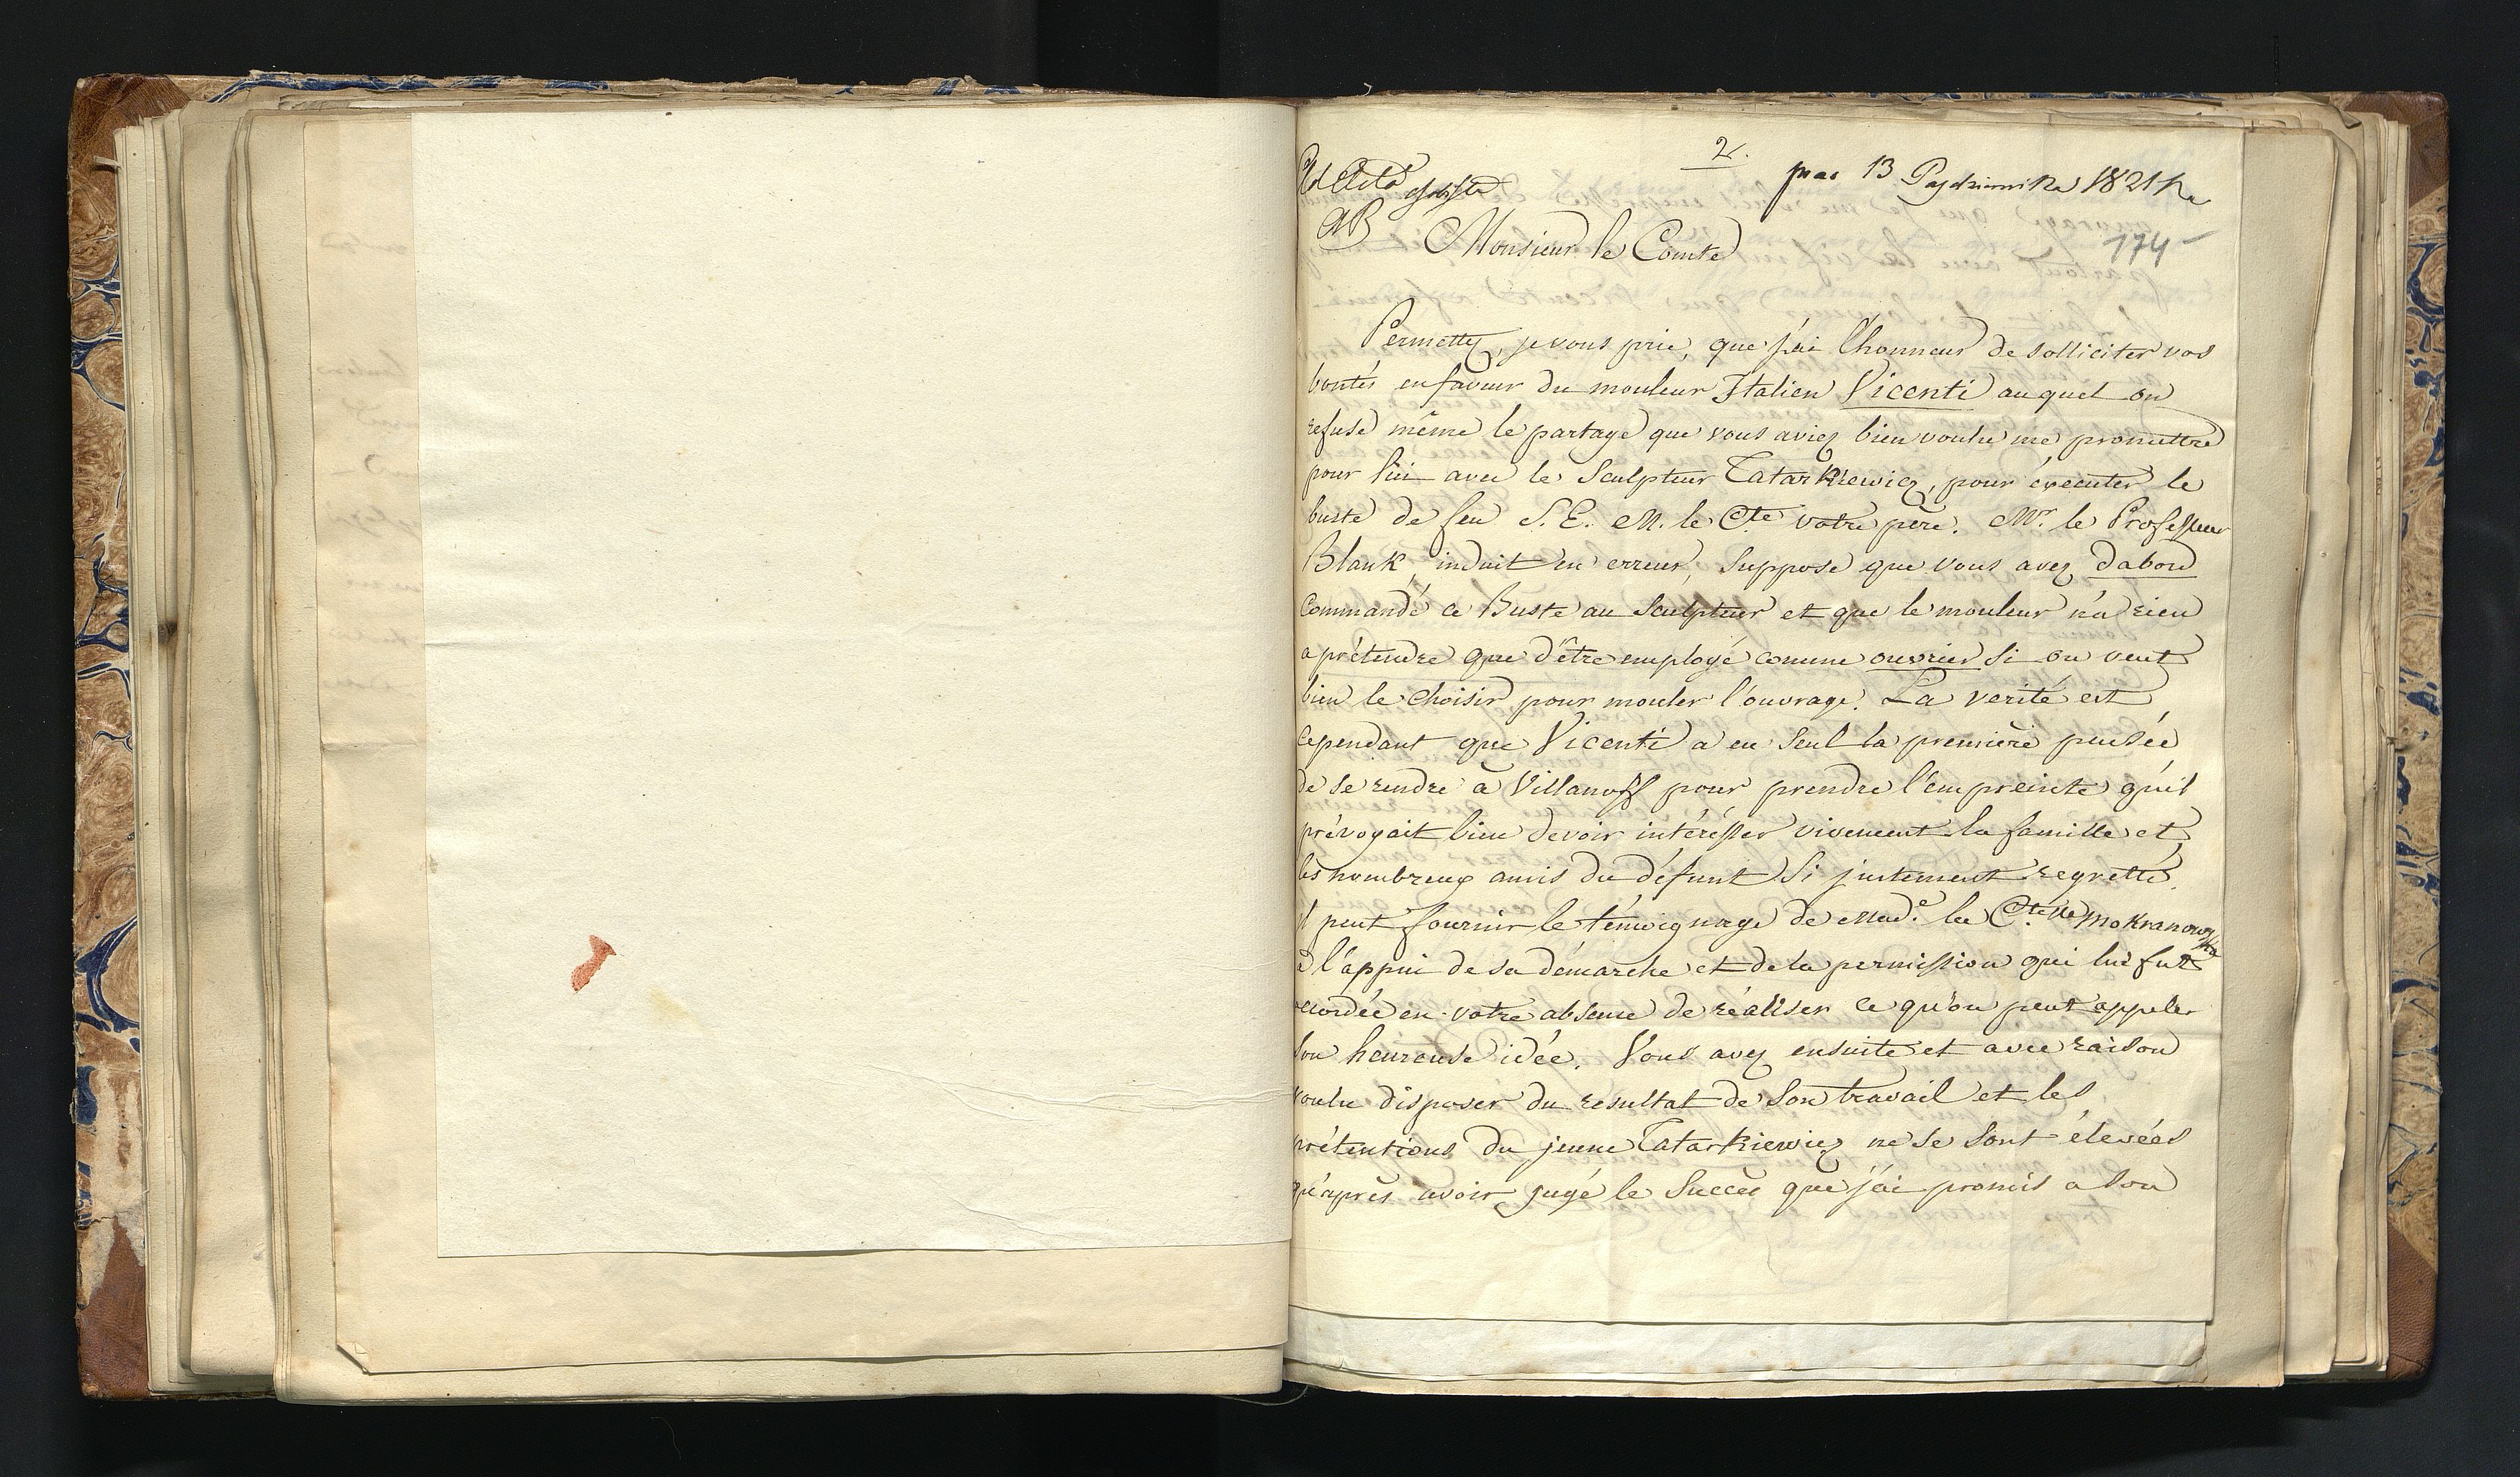 2.
Ad Acta
prae 13 Pazdziernika 1821 r
AB
Monsieur le Comte
174
Permettez, je vous prie, que j'ai l'honneur de solliciter vos
bontés en faveur du mouleur Italien Vicenti auquel on
refuse même le partage que vous aviez bien voulu me promettre
pour lui avec le Sculpteur Tatarkiewicz, pour éxécuter le
buste de feu S. E. M. le Cte votre père. Mr. le Professeur
Blank, induit en erreur, Suppose que vous avez dabord
Commandé ce Buste au Sculpteur et que le mouleur n'a rien
a prétendre que d'être employé comme ouvrier Si on veut
bien le choisir pour mouler l'ouvrage. La verité est
cependant que Vicenti a eu Seul la première pensée
de se rendre à Villanoff pour prendre l'empreinte qu'il
prévoyait bien devoir intérésser vivement la famille et
les nombreux amis du défunt Si justement regretté.
il peut fournir le témoignage de Made. la Ctesse Mokranowska
à l'appui de sa démarche et de la permission qui lui fut
accordée en votre absence de réaliser ce qu'on peut appeler
Son heureuse idée. Vous avez ensuite et avec raison
voulu disposer du resultat de Son travail et les
prétentions du jeune Tatarkiewicz ne se Sont élevées
qu'après avoir jugé le Succès que j'ai promis a Son